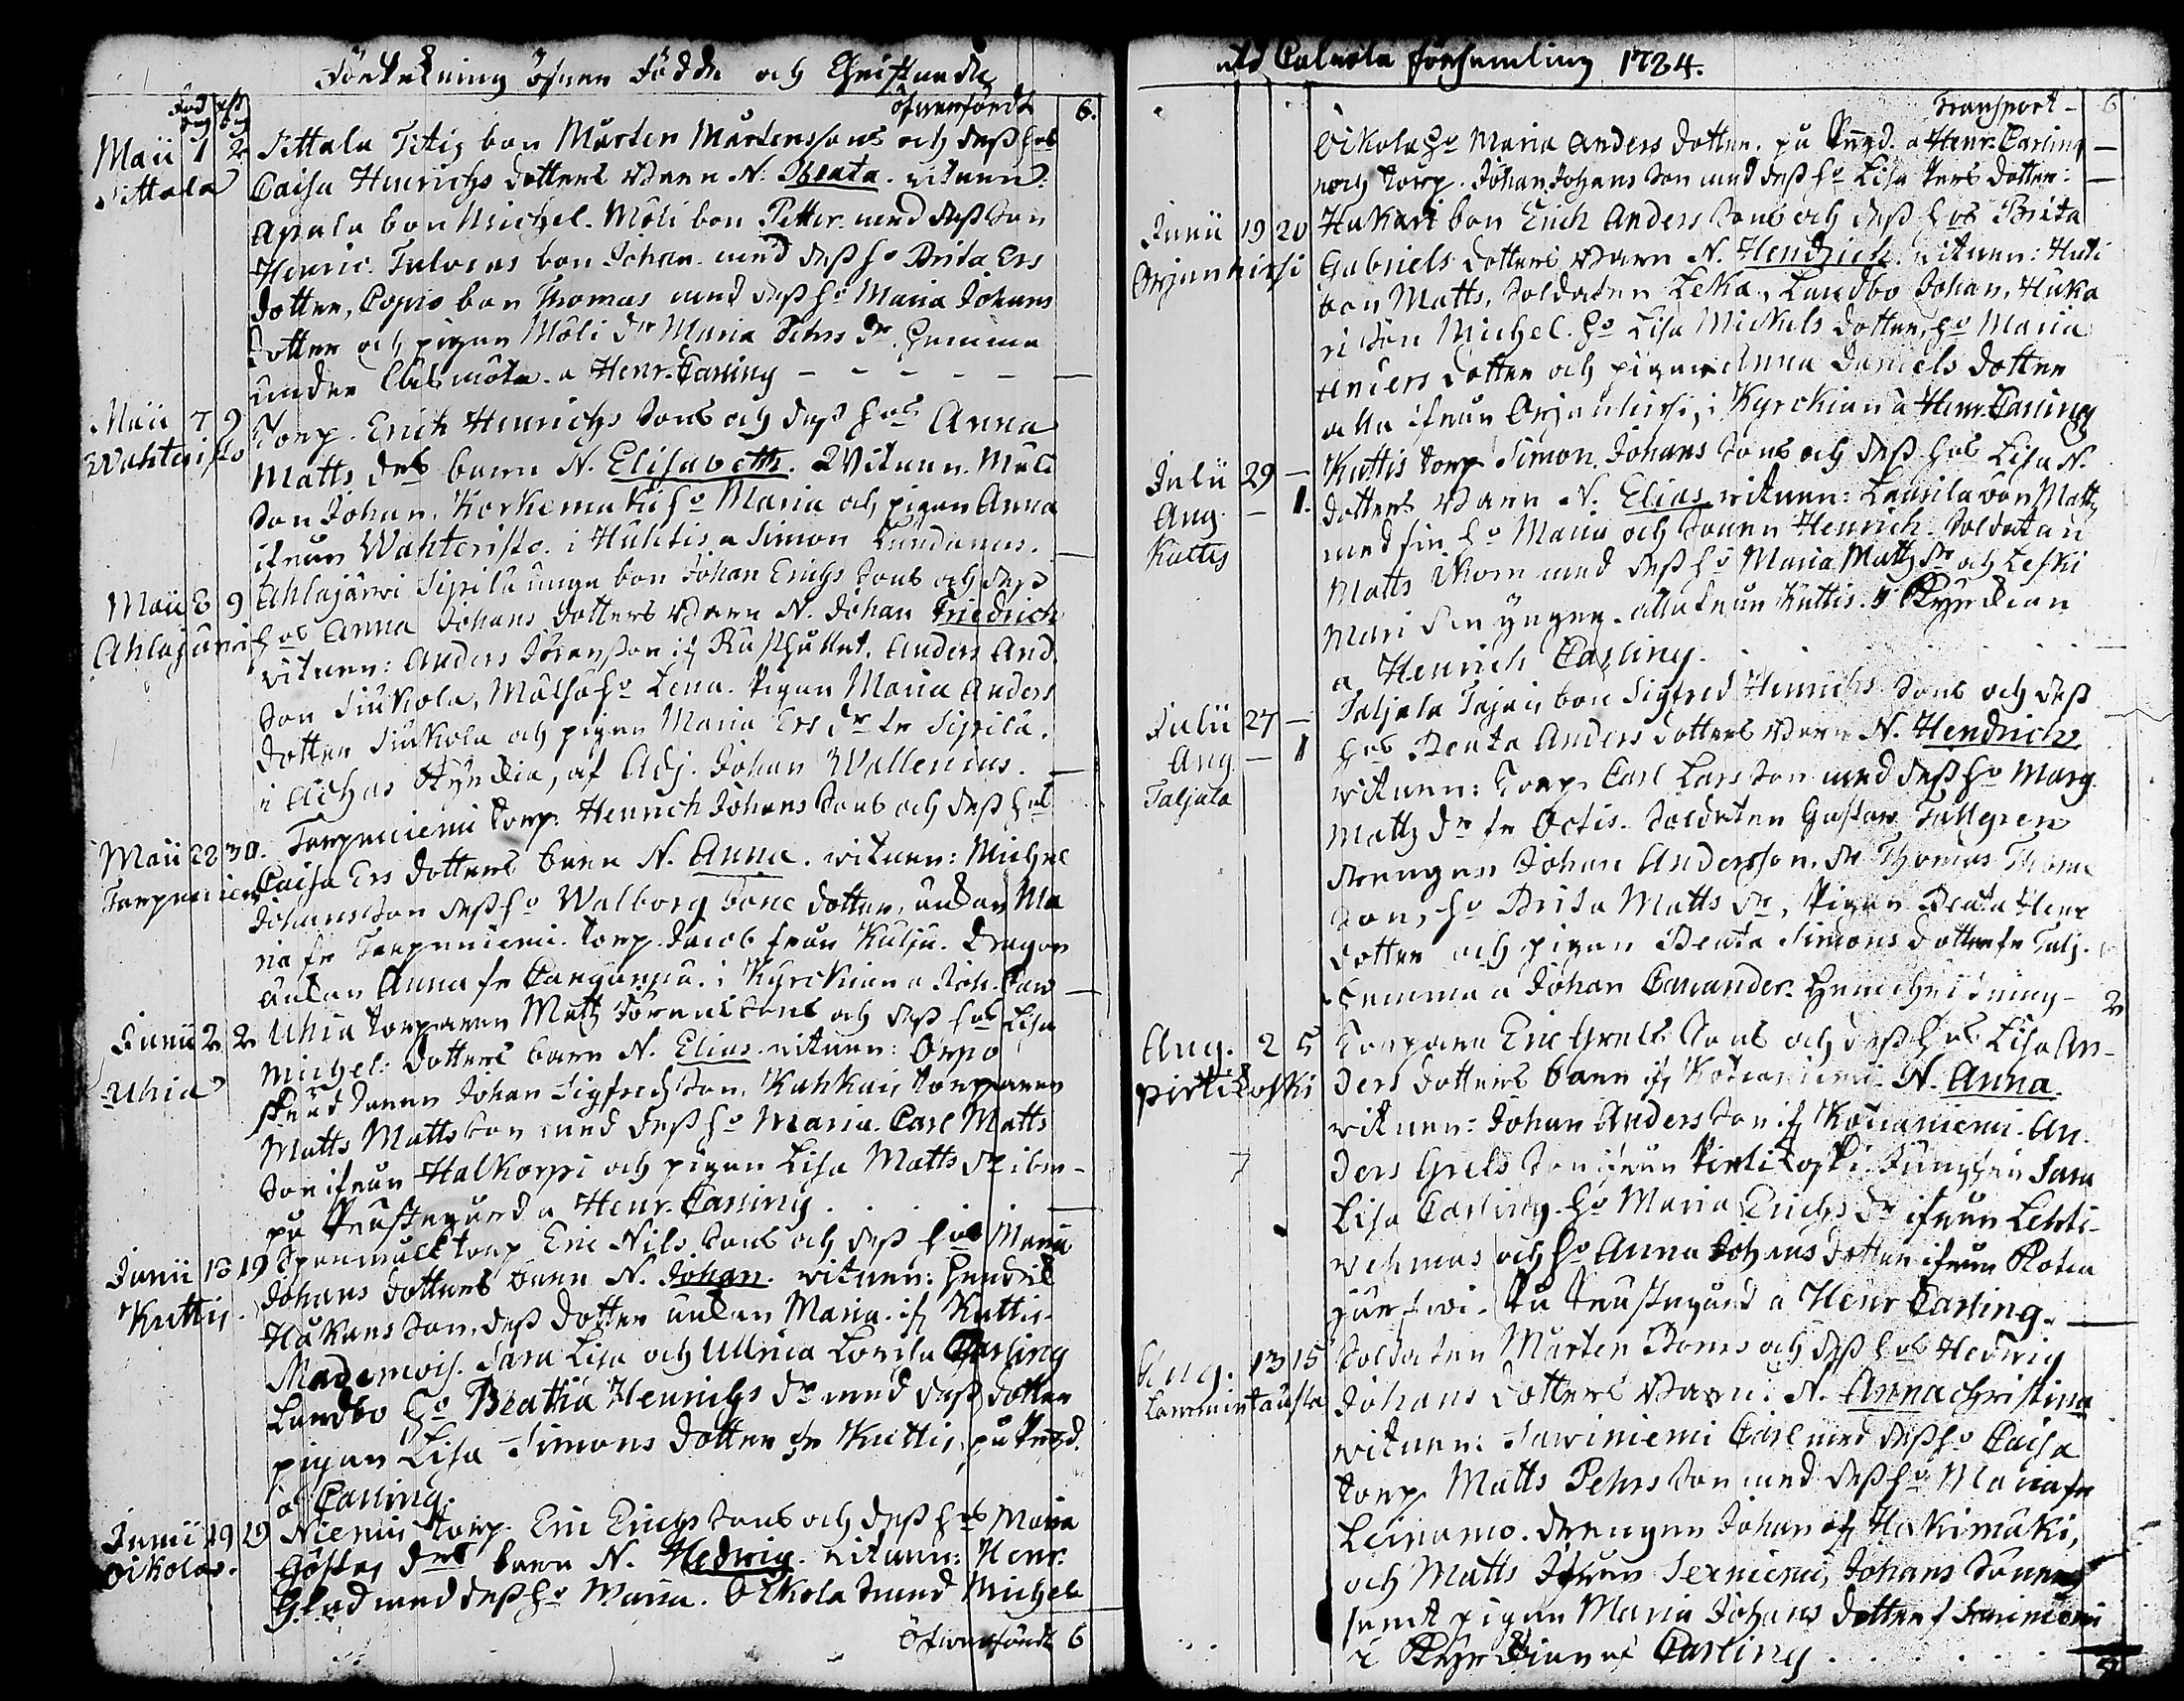 Förtekning öfver Födde och Christnade
Född dag Xst dag öfwerfördt 6.
Maii 1 2 Sittala Titig bon Mårten Mårtenssons och dess hos
Sittala Caisa Henrichs dotters Barn N. Beata. witnen:
Apiala bon Michel. Möli bon Petter med dess son
Henric. Talvias bon Johan med dess ho Brita Ers
dotter, Copio bon Thomas med dess ho Maria Johans
dotter och pigan Möli dr Maria Pehrs dr. hemma
under a Henr. Carling
Maii 7 9 Torp. Erich Henrichs sons och dess hos Anna
Wahteristo Matts drs barn N. Elisabeth. Witnen.
son Johan. Korkemäki ho Maria och pigan Anna
ifrån Wahteristo. i Hulttis a Simon Lundanus.
Maii 8 9 Ahlajärwi Sipilä unga bon Johan Erichs sons och dess
Ahlajärwi hos Anna Johans dotters Barn N. Johan Friedrich
witnen: Anders Göranson if Rusthållet. Anders And.
son Siukola, Mälsä ho Lena. Pigan Maria Anders
dotter Siukola och pigan Maria Ers dr fr Sipilä.
i Achas Kyrckia, af Adj. Johan Wallenius.
Maii 28 30. Tarpeniemi torp. Henrich Johans sons och dess hos
Tarpeniemi Caisa Ers dotters barn N. Anna. witnen: Michel
Johansson dess ho Walborg dotter, änkan Ma
ria fr Tarpeniemi. torp. Jacob från Kulju. Dragon
änkan Anna fr Cangarpä. i Kyrckian a Joh. Caw
Junii 2 2 Uhia torparen Matts Göransons och dess hos Lisa
Uhia Michel: dotters barn N. Elias. witnen: Orpo
sonen Johan Sigfredsson, Kahkais torparen
Matts Matts son med dess ho Maria. Carl Matts
son ifrån Halkorpi och pigan Lisa Matts dr ibm
på Prästegård a Henr. Carling
Junii 18 19 torp Eric Nils sons och dess hos Maria
Kuttis. Johans dotters barn N. Johan. witnen: Hendric
Håkansson, dess dotter änkan Maria if Kuttis.
Mademois. Sara Lisa och Ullrica Lovisa Carling
Landbo ho Beatha Henrichs dr med dess dotter
pigan Lisa Simons dotter fr Kuttis, på Prgd.
a Carling.
Junii 19 19 Niemis torp. Eric Erichs sons och dess hos Maria
Oikolas. Göstas drs barn N. Hedwig. witnen: Henr.
Glad med dess ho Maria. Oikola Michel
öfwerfördt 6
uti Calvola församling 1784.
Transport - 6
Oikola ho Maria Anders dotter. på Prgd. a Henr: Carling
torp. Johan Johans son med dess ho Lisa Pers dotter:
Junii 19 20 Hakari bon Erich Anders sons och dess hos Brita
Orjanhirsi Gabriels dotters Barn N. Hendrich. witnen: Huti
bon Matts, Soldaten Leka, Landbo Johan, Haka
ri son Michel. ho Lisa Mickels dotter, ho Maria
Anders dotter och pigan Anna Daniels dotter
alla ifrån Orjanhirsi, i Kyrckian a Henr. Carling
Julii 29 — Kuttis torp Simon Johans sons och dess hos Lisa N.
Aug. — 1. dotters Barn N. Elias witnen: Laurila bon Matts
Kuttis med sin ho Maria och sonen Henrich. Soldaten
Matts Kom med dess ho Maria Matts dr och Leski
Mari den yngre. alla från Kuttis. i Kyrckian
a Henrich Carling.
Julii 27 — Taljala Tajais bon Sigfred Henrichs sons och dess
Aug. — 1 hos Beata Anders dotters Barn N. Hendrich
Taljala witnen: Torp. Carl Lars son med dess ho Marg.
Matts dr fr Octis. Soldaten Gustav Tallgren
drengen Johan Andersson. dr Thomas Thome
son, ho Brita Matts dr, Pigan Beata Henr
dotter och pigan Beata Simons dotter fr Talj.
hemma a Johan Cavander. 2
Aug. 2 5 Torparen Eric Grels sons och dess hos Lisa An-
Pirtikoski ders dotters barn if Kotianiemi. N. Anna.
witnen: Johan Anders son if Kotianiemi. An.
ders Grels son ifrån Pirtikoski. Jungfru Sara
Lisa Carling. ho Maria Erichs dr ifrån Lehti-
wehmas och ho Anna Johans dotter ifrån Kotia
På Prästegård a Henr Carling.
Aug. 13 15 Soldaten Mårten Boms och dess hos Hedwig
Lammintausta Johans dotters Barn. N. Anna Christina
witnen: Sawiniemi Carl med dess ho Caisa
torp. Matts Pehrs son med dess ho Maria fr
Leinamo. drengen Johan if Hakimäki,
och Matts ifrån Johans sonen
samt pigan Maria Johans dotter f Sawiniemi
i Kyrckian af Carling